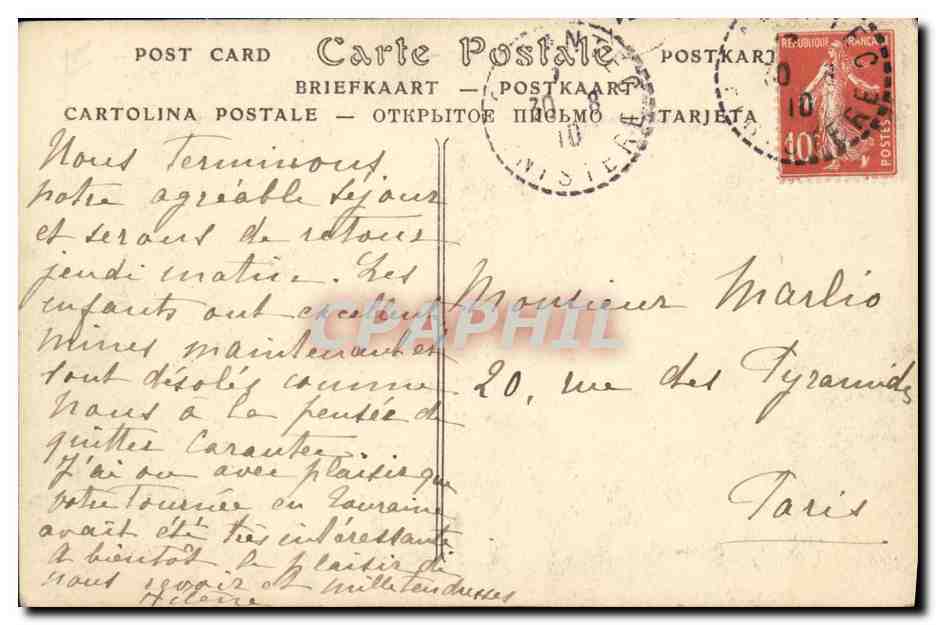 POST CARD Carte Postale POSTKART
BRIEFKAART — POSTKAART
CARTOLINA POSTALE — ОТКРЫТОЕ ПИСЬМО — TARJETA
RÉPUBLIQUE FRANÇAISE
10
POSTES
30 8
10
10
Nous terminons
notre agréable séjour
et serons de retour
jeudi matin. Les
enfants ont excellent
mines maintenant et
sont désolés comme
nous à la pensée de
quitter Carantec
J'ai vu avec plaisir que
votre tournée en Touraine
avait été très intéressante
A bientôt le plaisir de
nous revoir et mille tendresses
Hélène
Monsieur Marlio
20, rue des Pyramides
Paris
CPAPHIL